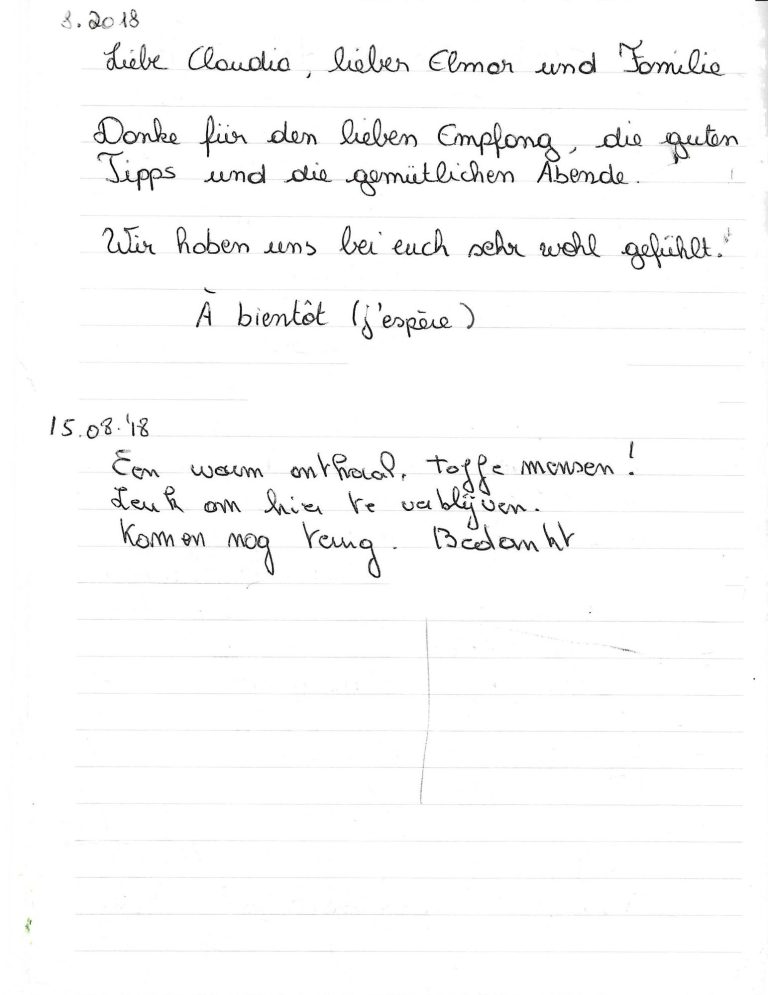 8.2018
Liebe Claudia, lieber Elmar und Familie
Danke für den lieben Empfang, die guten
Tipps und die gemütlichen Abende.
Wir haben uns bei euch sehr wohl gefühlt.
À bientôt (j'espère)
15.08.'18
Een warm onthaal, toffe mensen!
Leuk om hier te verblijven.
Komen nog terug. Bedankt